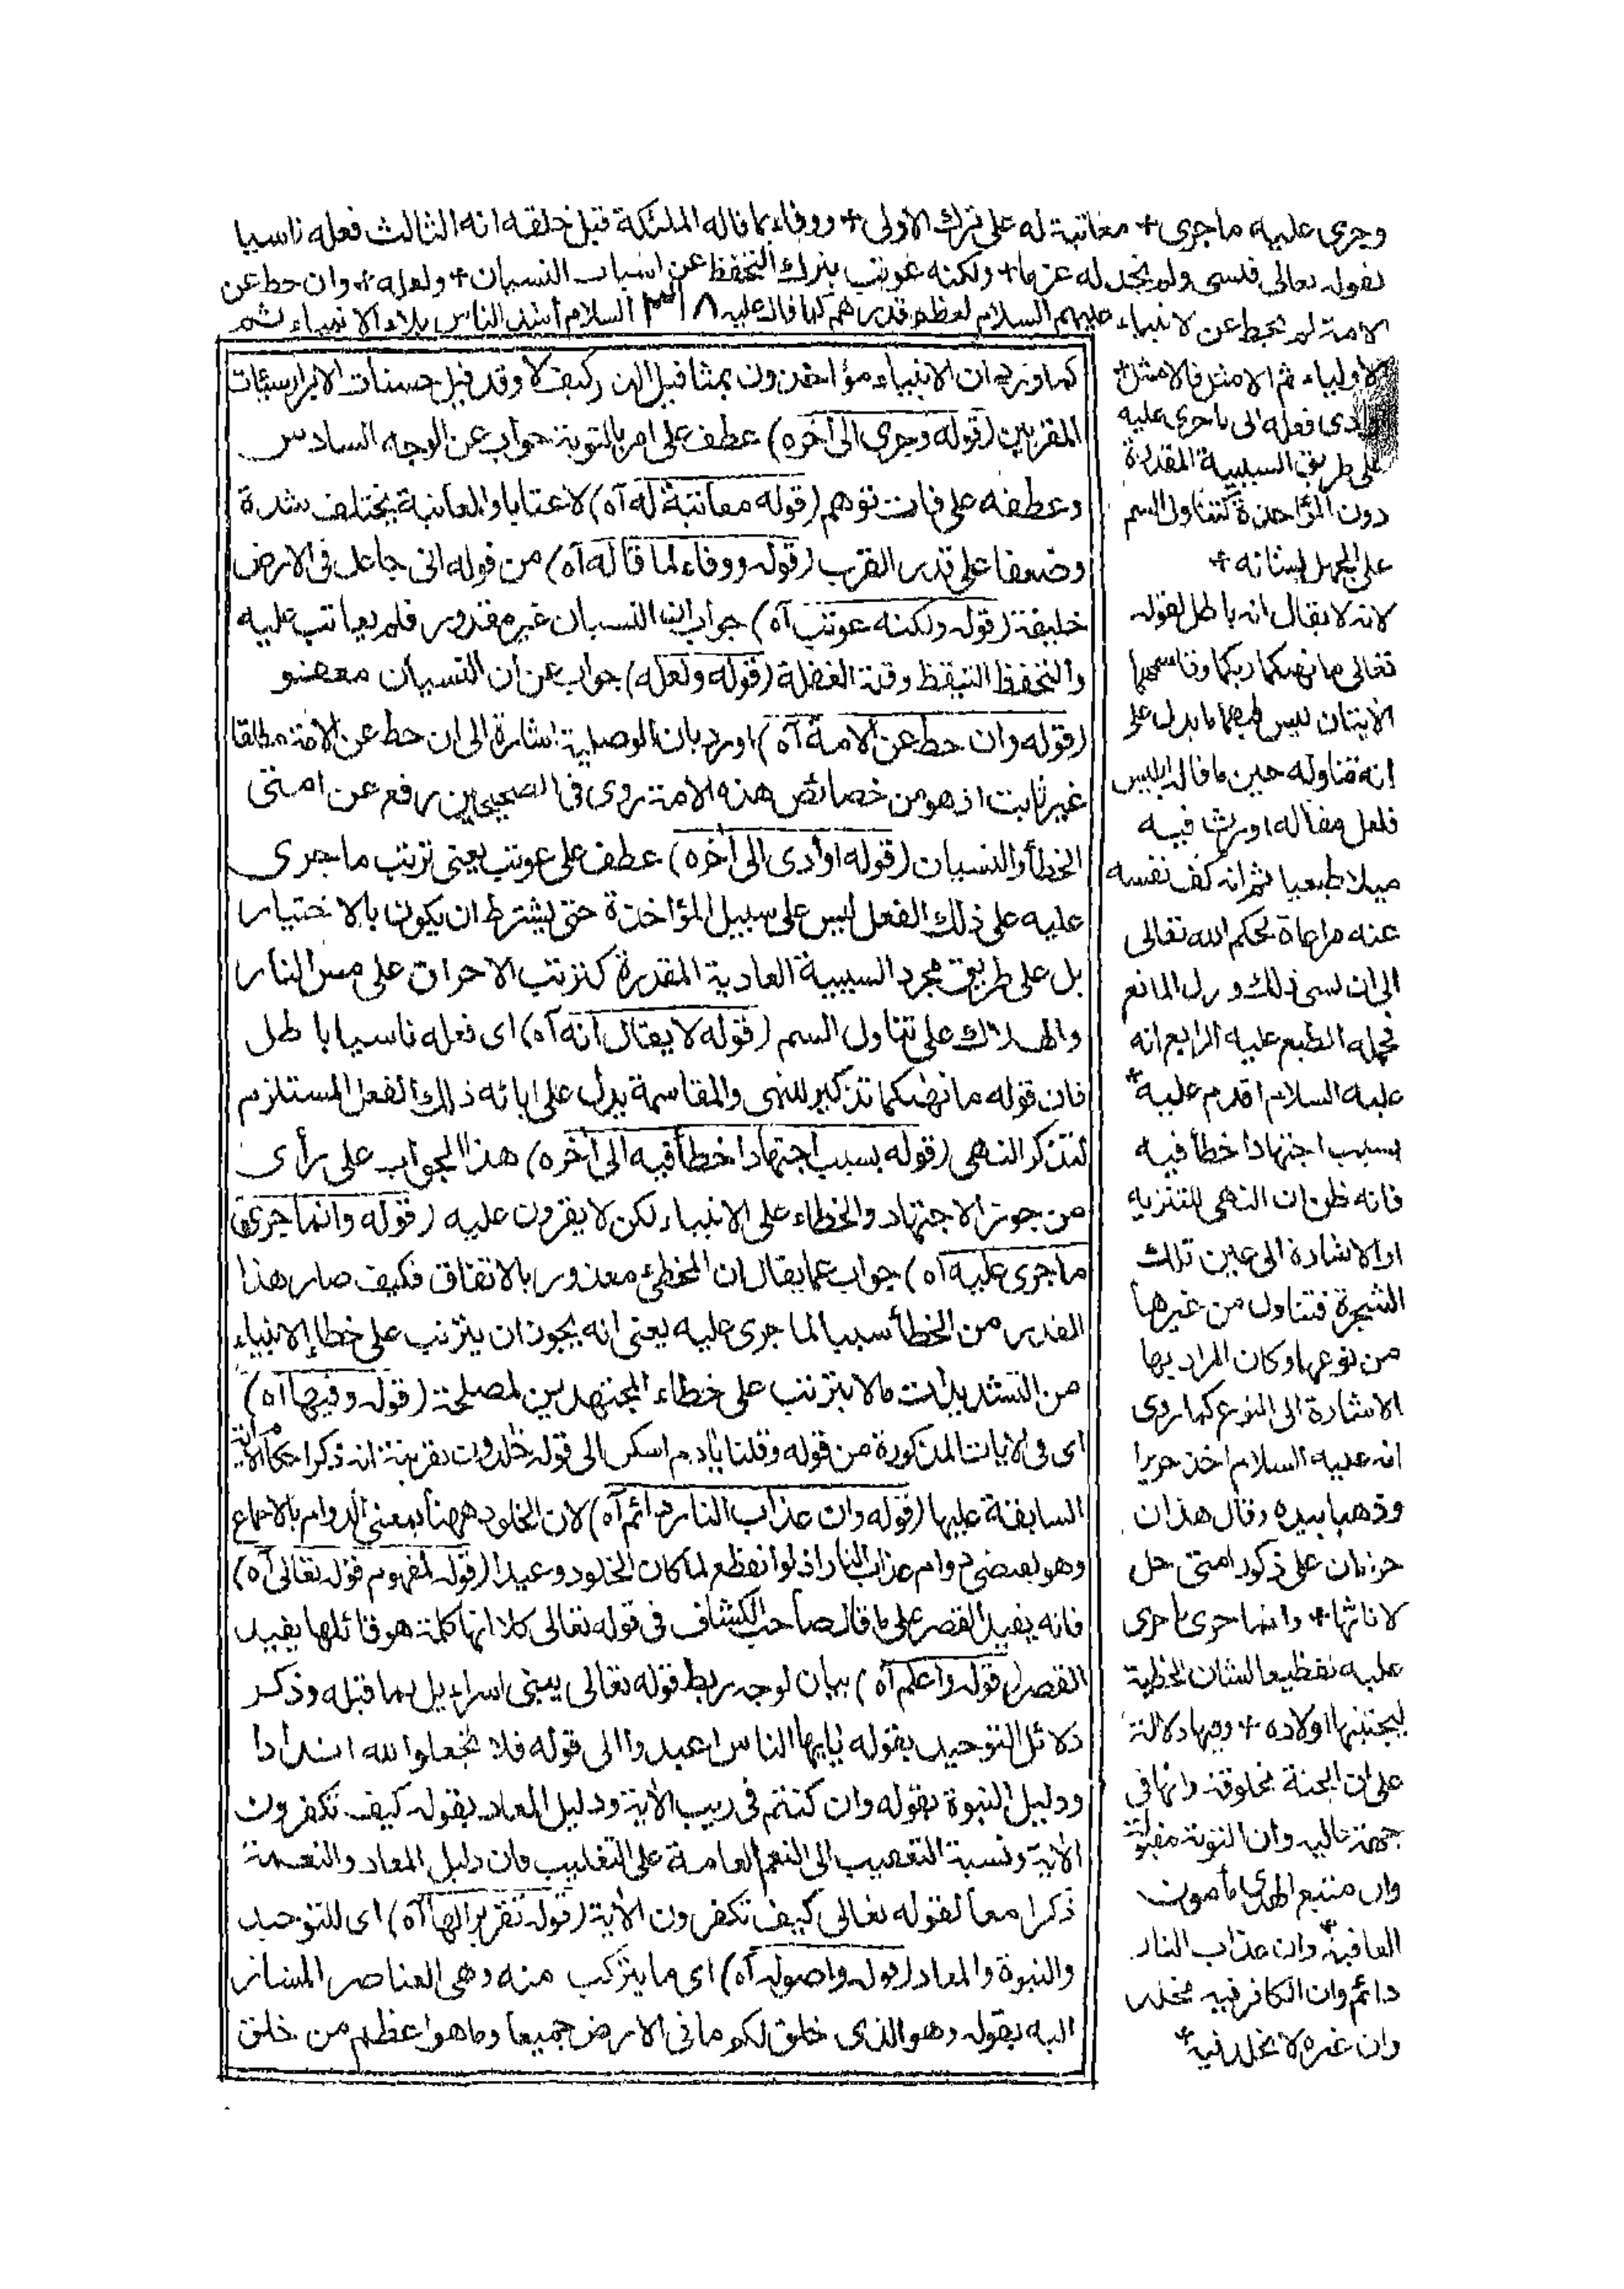 وجرى عليه ما جرى + معاتبة له على ترك الاولى + ووفاء بما قاله الملئكة قبل خلقه انه الثالث فعله ناسيا
لقوله تعالى فنسى ولم نجد له عزما + ولكنه عوتب بترك التحفظ عن اسباب النسيان + ولعله + وان حط عن
الامة لم يحط عن الانبياء عليهم السلام لعظم قدرهم كما قال عليه السلام أشد الناس بلاء الانبياء ثم
الاولياء ثم الامثل فالامثل +
أدى فعله الى ما جرى عليه
على طريق السببية المقدرة
دون المؤاخذة كتناول السم
على الجهل بشانه +
لانه لا يقال انه باطل لقوله
تعالى ما نهٰىكما ربكما وقاسمهما
الأيتان ليس فيهما ما يدل على
انه تناوله حين ما قال له ابليس
فلعل مقاله اورث فيه
ميلا طبعيا ثم انه كف نفسه
عنه مراعاة لحكم الله تعالى
الى ان نسى ذلك و زال المانع
فحمله الطبع عليه الرابع انه
عليه السلام اقدم عليه +
بسبب اجتهاد اخطأ فيه
فانه ظن ان النهى للتنزيه
او الاشارة الى عين تلك
الشجرة فتناول من غيرها
من نوعها وكان المراد بها
الاشارة الى النوع كما روى
انه عليه السلام اخذ حريرا
وذهبا بيده وقال هذان
حرامان على ذكور امتى حل
لاناثها + وانما جرى ما جرى
عليه تفظيعا لشان الخطية
ليجتنبها اولاده + وفيها دلالة
على ان الجنة مخلوقة وانها فى
جهة عالية وان التوبة مقبولة
وان متبع الهدى مأمون
العاقبة وان عذاب النار
دائم وان الكافر فيه مخلد
وان غيره لا يخلد فيه +
كما ورد ان الانبياء مؤاخذون بمثاقيل الذر كيف لا وقد قيل حسنات الابرار سيئات
المقربين (قوله وجرى الى أخره) عطف على امر بالتوبة جواب عن الوجه السادس
وعطفه على فات توهم (قوله معاتبة له آه) لا عتابا والمعاتبة يختلف شدة
وضعفا على قدر القرب (قوله ووفاء لما قاله آه) من قوله انى جاعل فى الارض
خليفة (قوله ولكنه عوتب آه) جواب ان النسيان غير مقدور فلم يعاتب عليه
والتحفظ التيقظ وقلة الغفلة (قوله ولعله) جواب عن ان النسيان معفو
(قوله وان حط عن الامة آه) اورد بان الوصلية اشارة الى ان حط عن الامة مطلقا
غير ثابت اذ هو من خصائص هذه الامة روى فى الصحيحين رفع عن امتى
الخطأ والنسيان (قوله او أدى الى أخره) عطف على عوتب يعنى ترتب ما جرى
عليه على ذلك الفعل ليس على سبيل المؤاخذة حتى يشترط ان يكون بالاختيار
بل على طريق مجرد السببية العادية المقدرة كترتب الاحراق على مس النار
والهلاك على تناول السم (قوله لا يقال انه آه) اى فعله ناسيا باطل
فان قوله ما نهٰىكما تذكير للنهى والمقاسمة يدل على ابائه ذلك الفعل المستلزم
لتذكر النهى (قوله بسبب اجتهاد اخطأ فيه الى أخره) هذا الجواب على رأى
من جوز الاجتهاد والخطاء على الانبياء لكن لا يقرون عليه (قوله وانما جرى
ما جرى عليه آه) جواب عما يقال ان المخطئ معذور بالاتفاق فكيف صار هذا
القدر من الخطأ سببا لما جرى عليه يعنى انه يجوز ان يترتب على خطإ الانبياء
من التشديدات ما لا يترتب على خطاء المجتهدين لمصلحة (قوله وفيها آه)
اى فى الأيات المذكورة من قوله وقلنا يٰادم اسكن الى قوله خٰلدون بقرينة انه ذكر
السابقة عليها (قوله وان عذاب النار دائم آه) لان الخلود هٰهنا بمعنى الدوام بالاجماع
وهو يقتضى دوام عذاب النار اذ لو انقطع لما كان الخلود وعيدا (قوله لمفهوم قوله تعالى آه)
فانه يفيد القصر على ما قال صاحب الكشاف فى قوله تعالى كلا انها كلمة هو قائلها يفيد
القصر (قوله واعلم آه) بيان لوجه ربط قوله تعالى يبنى اسراءيل بما قبله وذكر
دلائل التوحيد بقوله يٰايها الناس اعبدوا الى قوله فلا تجعلوا لله اندادا
ودليل النبوة بقوله وان كنتم فى ريب الأية ودليل المعاد بقوله كيف تكفرون
الأية ونسبة التعقيب الى النعم العامة على التغليب فان دليل المعاد والنعمة
ذكرا معا لقوله تعالى كيف تكفرون الأية (قوله تقريرا لها آه) اى للتوحيد
والنبوة والمعاد (قوله واصوله آه) اى ما يتركب منه وهى العناصر المشار
اليه بقوله وهو الذى خلق لكم ما فى الارض جميعا وما هو اعظم من خلق